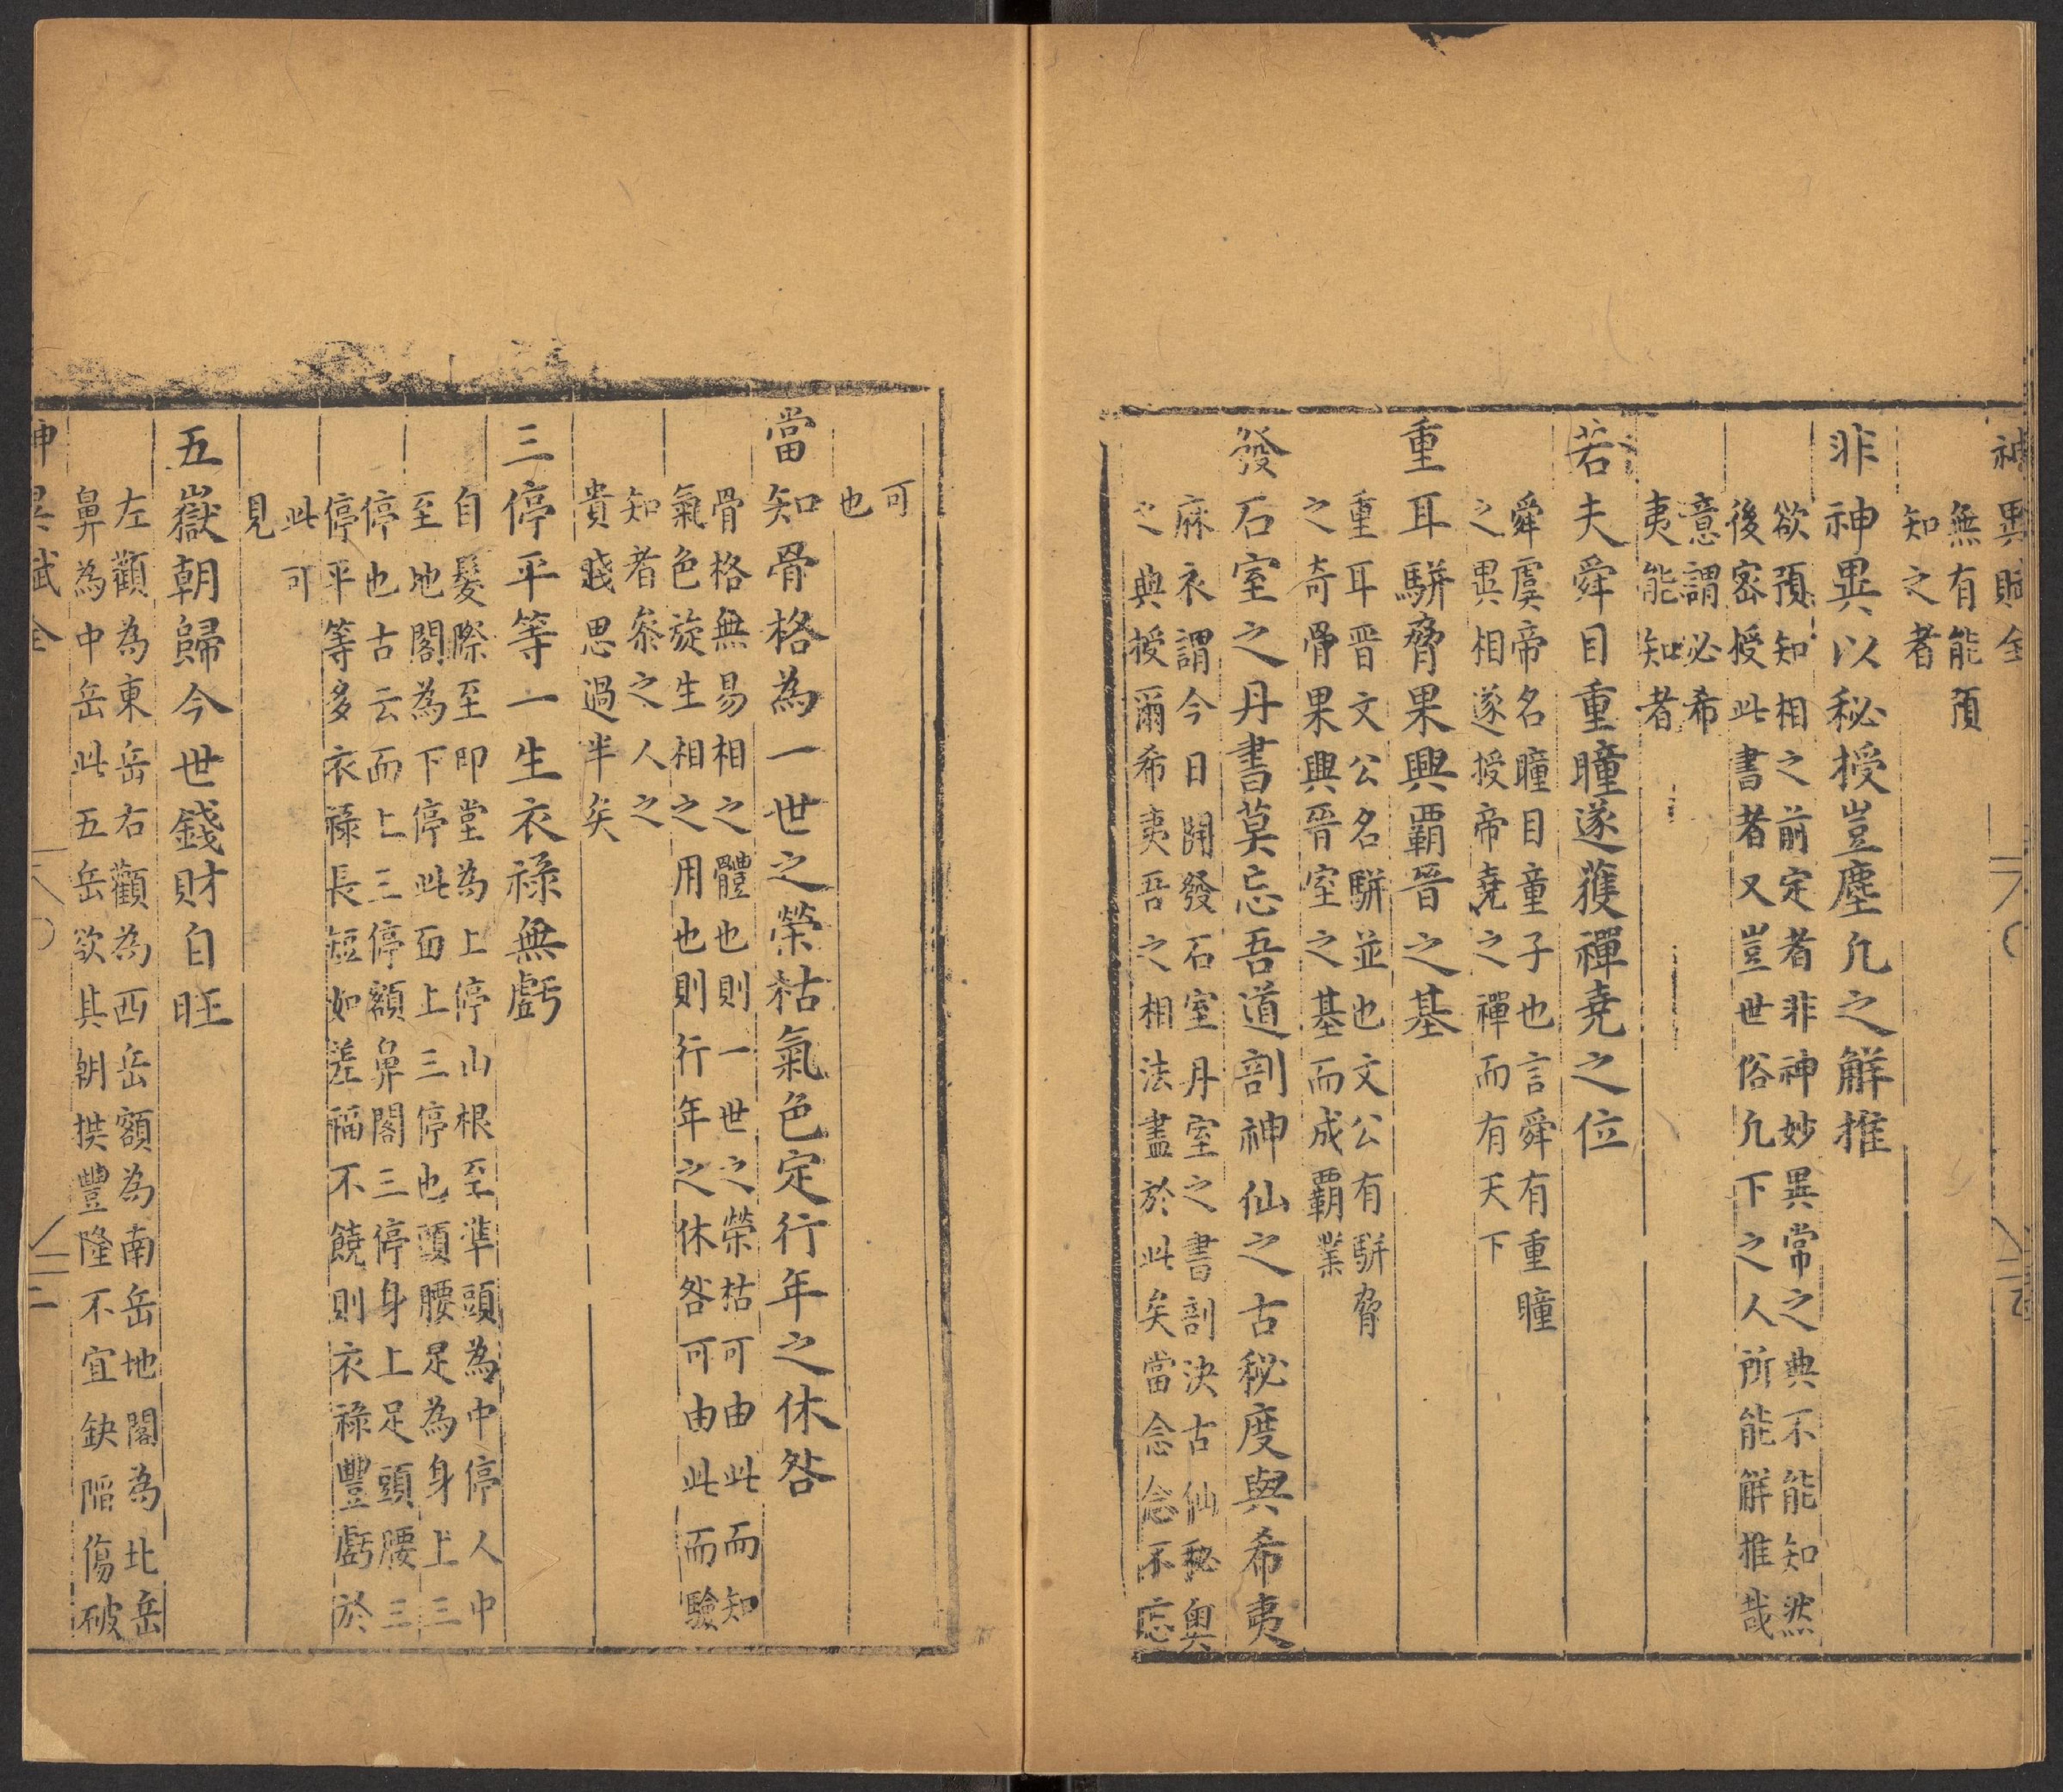 神異賦全
無有能預
知之者
非神異以秘授豈塵凢之觧推
欲預知相之前定者非神妙異常之典不能知然
後宻授此書者又豈世俗凢下之人所能觧推哉
意謂必希
夷能知者
若夫舜目重瞳遂獲禪尭之位
舜虞帝名瞳目童子也言舜有重瞳
之異相遂授帝尭之禪而有天下
重耳駢脅果興覇晉之基
重耳晋文公名駢並也文公有駢脅
之奇骨果興晉室之基而成覇業
發石室之丹書莫忘吾道剖神仙之古秘度與希夷
麻衣謂今日開發石室丹室之書剖決古仙秘奥
之與授爾希夷吾之相法盡於此矣當念念不忘
可
也
當知骨格為一世之榮枯氣色定行年之休咎
骨格無易相之體也則一世之榮枯可由此而知
氣色旋生相之用也則行年之休咎可由此而驗
知者叅之人之
貴賤思過半矣
三停平等一生衣祿無虧
自髮際至印堂為上停山根至準頭為中停人中
至地閣為下停此面上三停也頭腰足為身上三
停也古云面上三停額鼻閣三停身上足頭腰三
停平等多衣祿長短如差福不饒則衣祿豐虧於
此可
見
五嶽朝歸今世錢財自旺
左顴為東岳右顴為西岳額為南岳地閣為北岳
鼻為中岳此五岳欲其朝拱豐隆不宜缺陷傷破
神異賦全
二